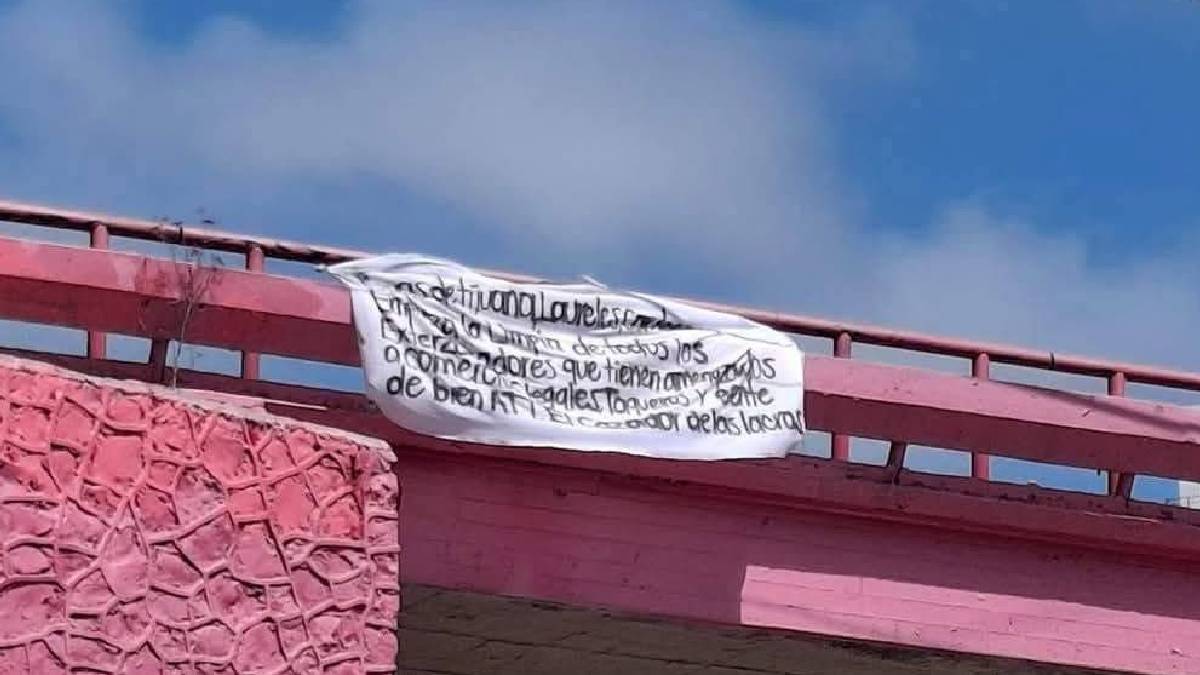 de tijuana y Laureles
Empieza la Limpia de todos los
a comerciantes que tienen amenazados
legales Taqueros y Gente
de bien ATT El cazador de las lacras